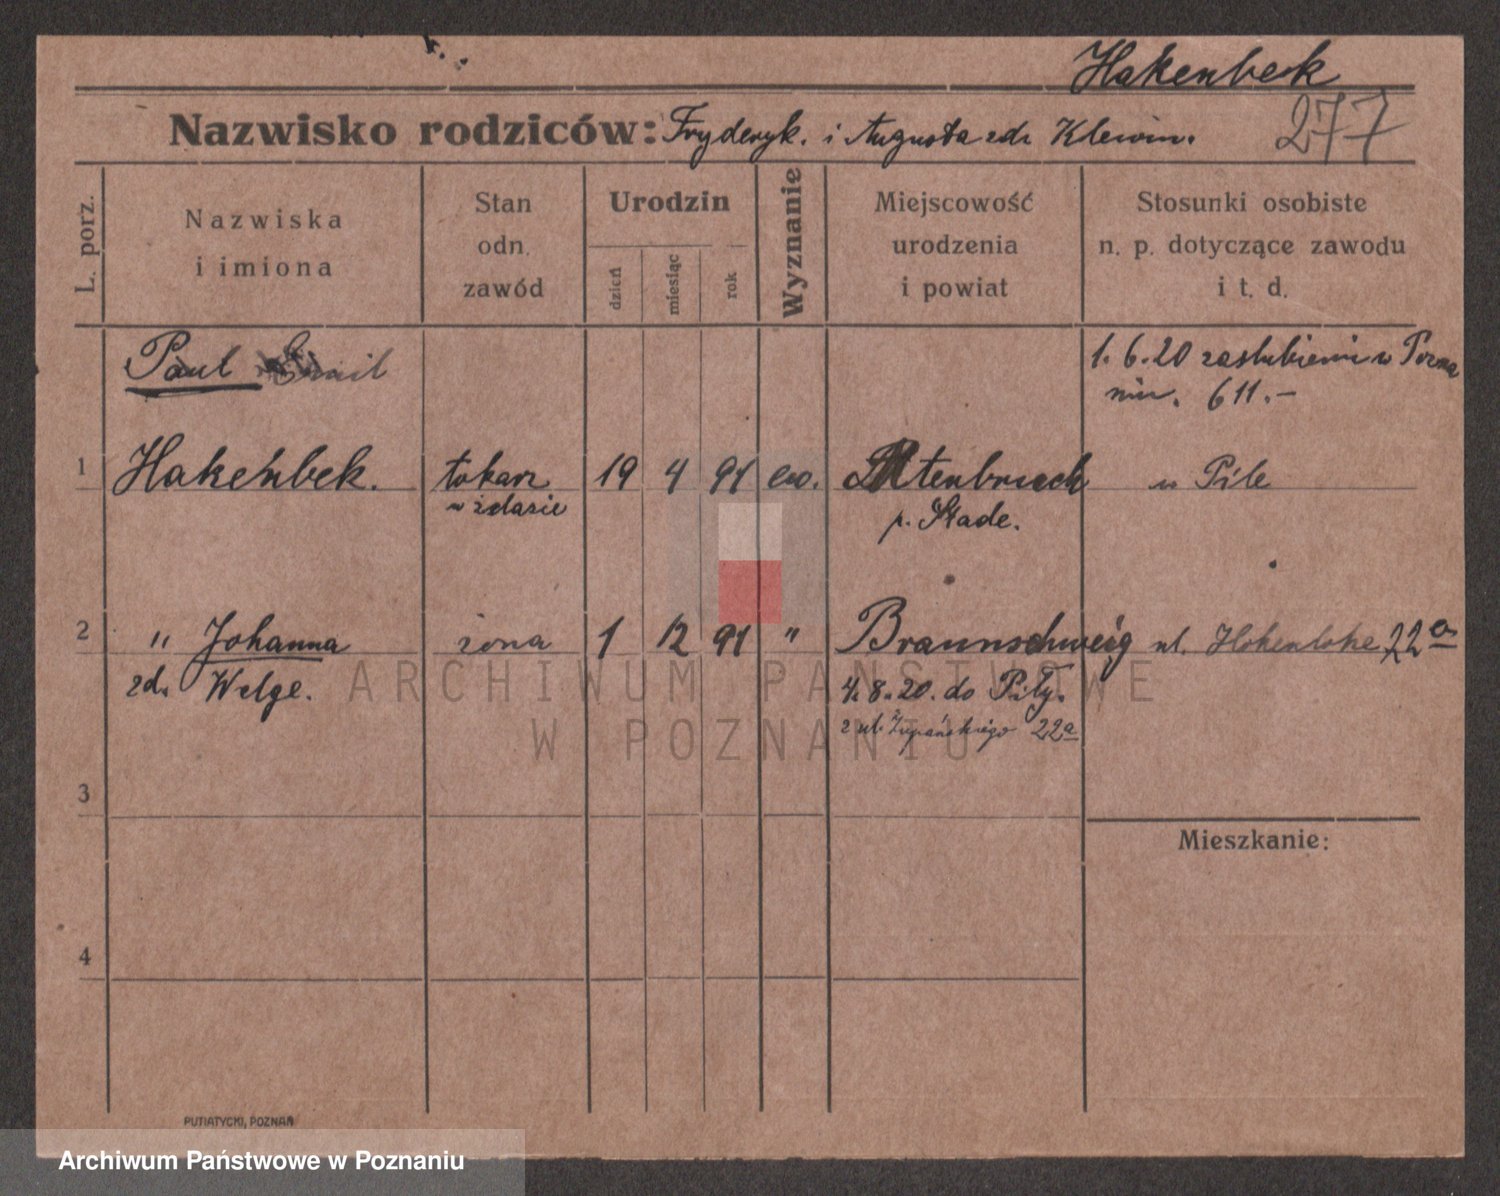 Hakenbeck
Nazwisko rodziców: Fryderyk. i Augusta zdr Klewin.
277
L. porz.
Nazwiska
i imiona
Stan
odn.
zawód
Urodzin
dzień
miesiąc
rok
Wyznanie
Miejscowość
urodzenia
i powiat
Stosunki osobiste
n. p. dotyczące zawodu
i t. d.
Paul Emil
1. 6. 20 zaślubieni w Pozna
niu. 611.–
1 Hakenbek. tokarz 19 4 91 ew. w Pile
w żelazie p. Stade.
2 " Johanna żona 1 12 91 " Braunschweig ul. Hohenlohe 22a
zd. Welge. 4. 8. 20. do Piły.
z ul. Żupańskiego 22a
3
Mieszkanie:
4
PUTIATYCKI, POZNAŃ
ARCHIWUM PAŃSTWOWE
W POZNANIU
Archiwum Państwowe w Poznaniu